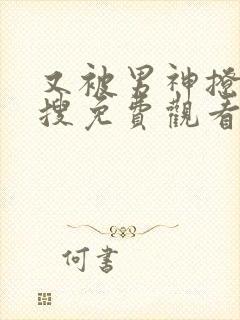 又被男神撩
搜免費觀看
何書